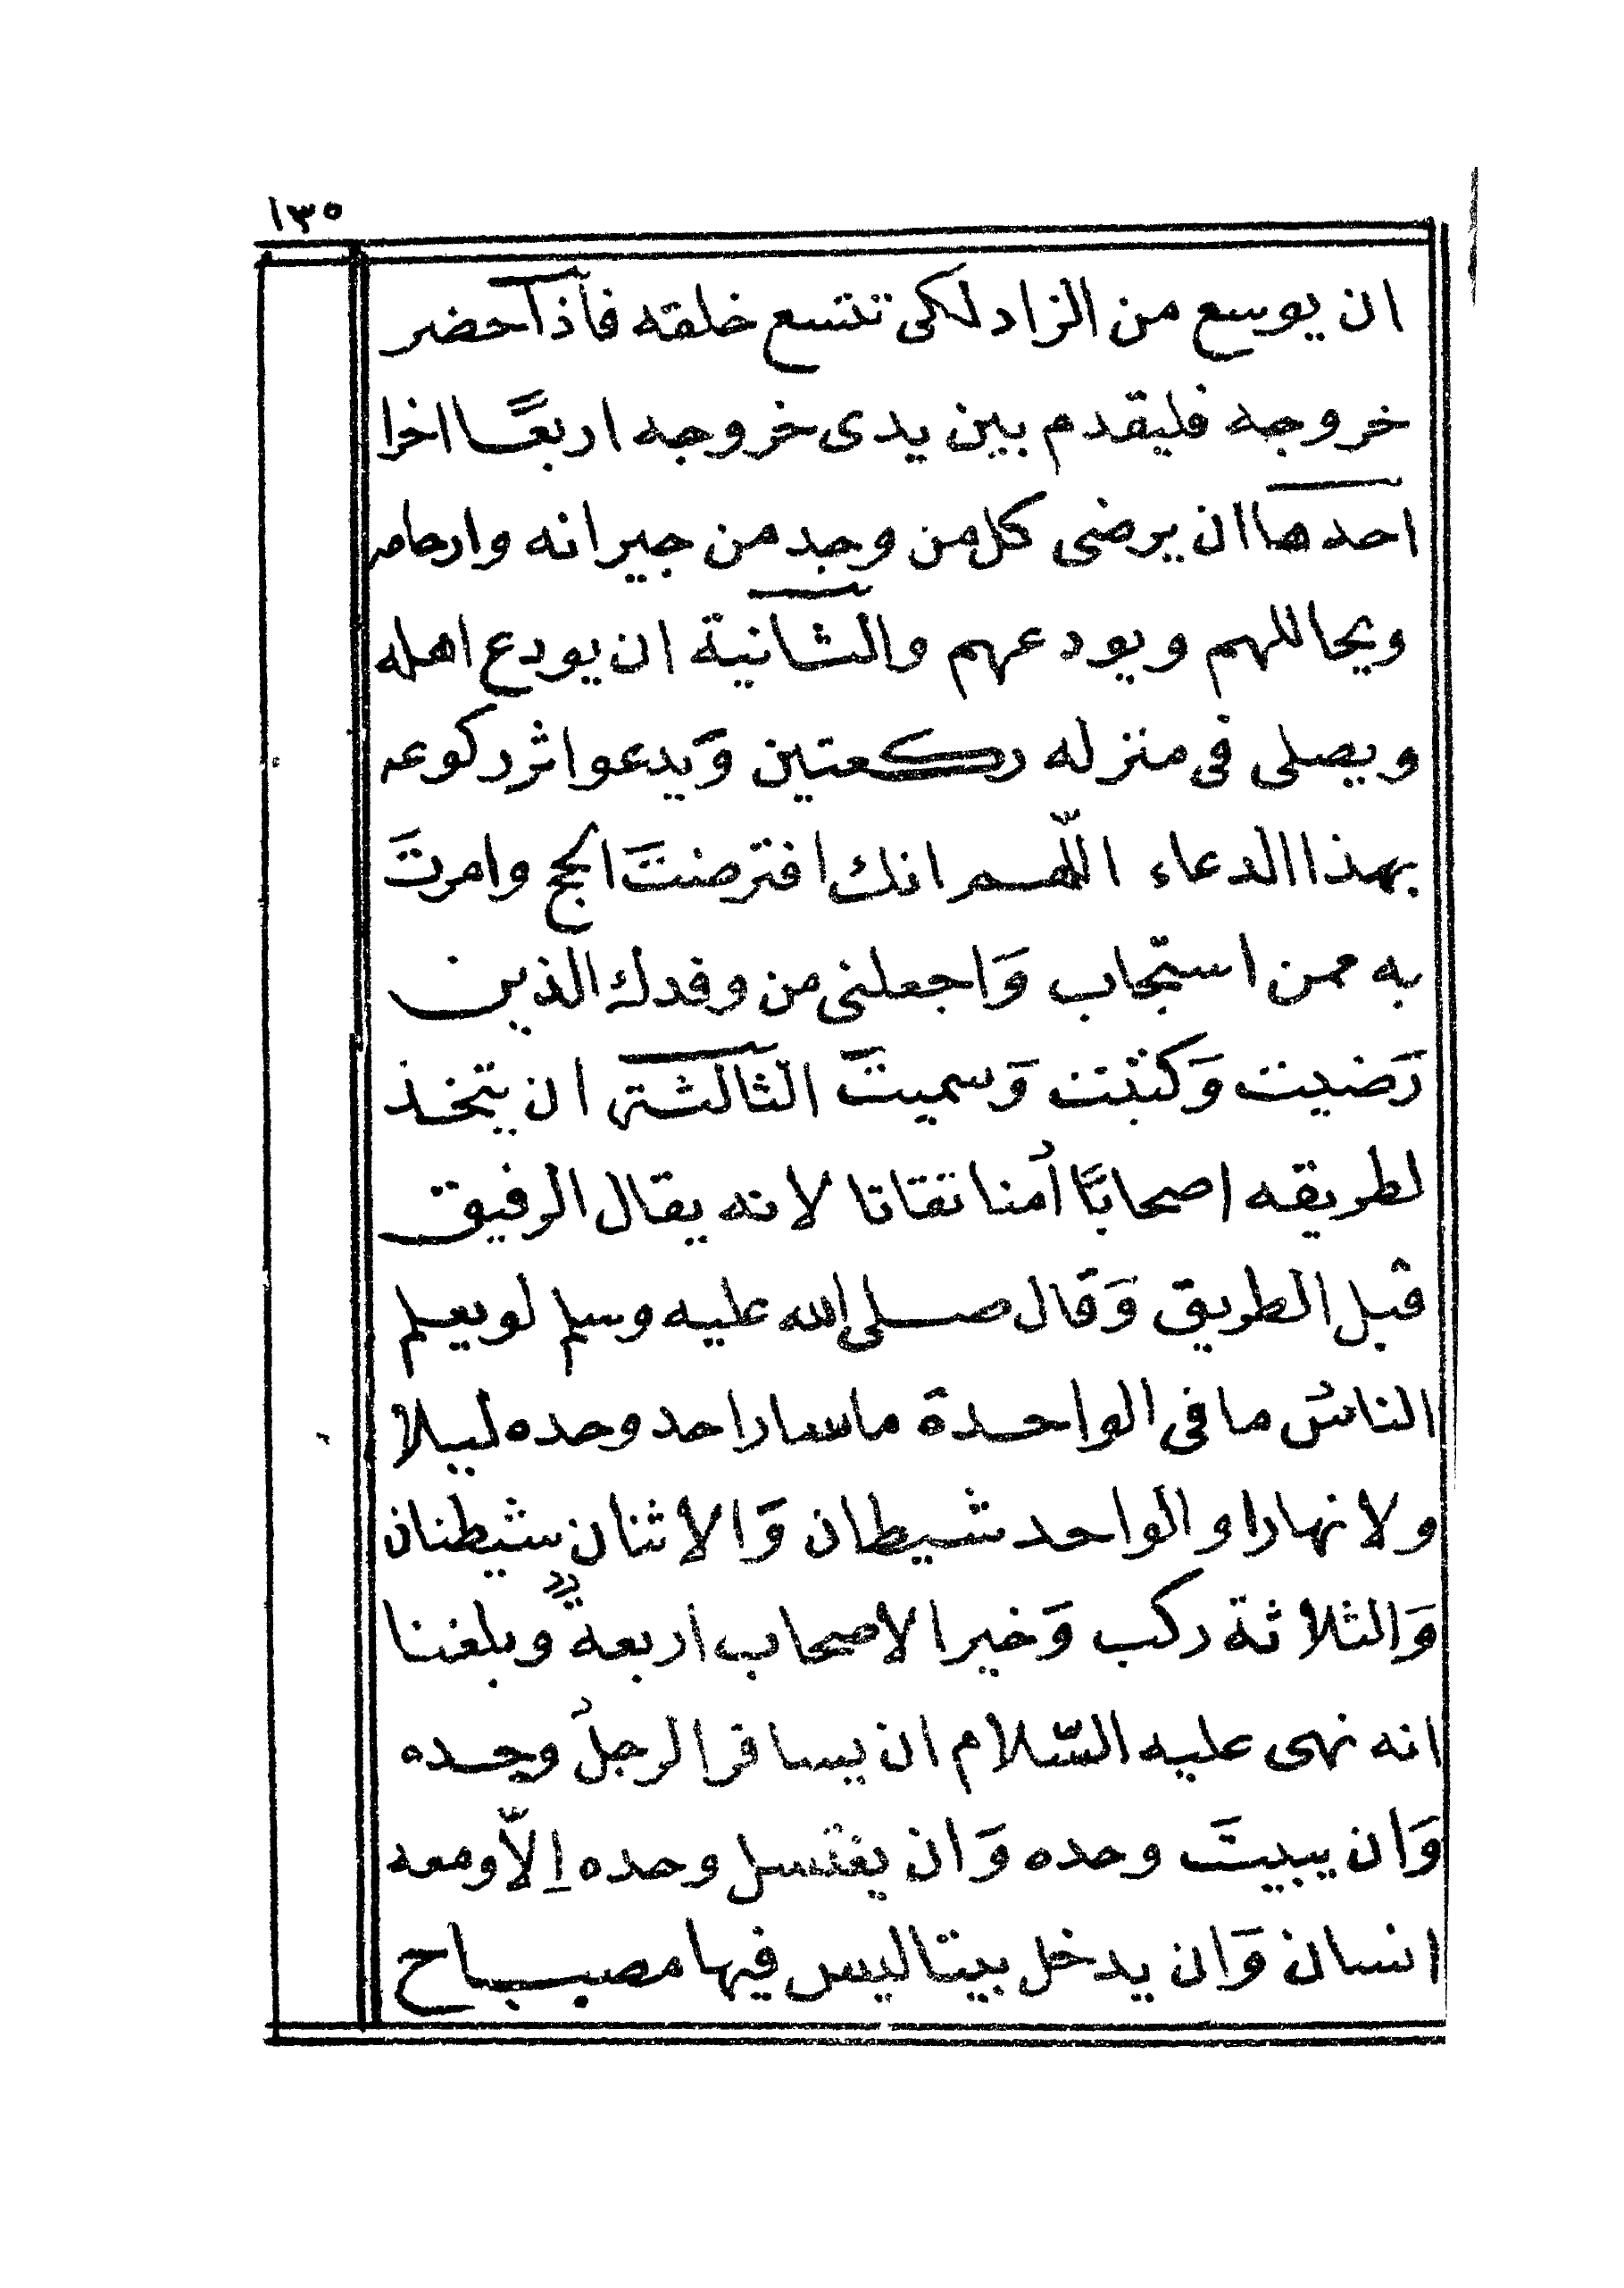 ١٣٥
ان يوسع من الزاد لكى تتسع خلقه فاذا حضر
خروجه فليقدم بين يدى خروجه اربعًا اخرا
احدها ان يرضى كل من وجد من جيرانه وارحامه
ويحاللهم ويودعهم والثانية ان يودع اهله
ويصلى فى منزله ركعتين وَيدعوا اثر ركوعه
بهذا الدعاء اللّهم انك افترضتَ الحج وامرتَ
به ممن استجاب وَاجعلنى من وفدك الذين
رَضيت وَكتبت وَسميتَ الثالثة ان يتخذ
لطريقه اصحابًا اُمنا تقاتا لانه يقال الرفيق
قبل الطريق وَقال صلى الله عليه وسلم لو يعلم
الناسُ ما فى الواحدة ما سار احد وحده ليلا
ولا نهارا والواحد شيطان وَالاثنان شيطنان
وَالثلاثة ركب وَخير الاصحاب اربعةٌ وبلغنا
انه نهى عليه السّلام ان يسافر الرجلُ وحده
وَان يبيتَ وحده وَان يغتسل وحده اِلاّ ومعه
انسان وَان يدخل بيتا ليس فيها مصباح